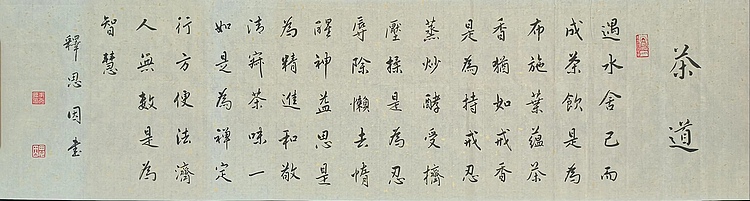 茶道
遇水舍己而
成茶飲是為
布施葉蘊茶
香猶如戒香
是為持戒忍
蒸炒酵受擠
壓揉是為忍
辱除懶去惰
醒神益思是
為精進和敬
清寂茶味一
如是為禪定
行方便法濟
人無數是為
智慧
釋思因書